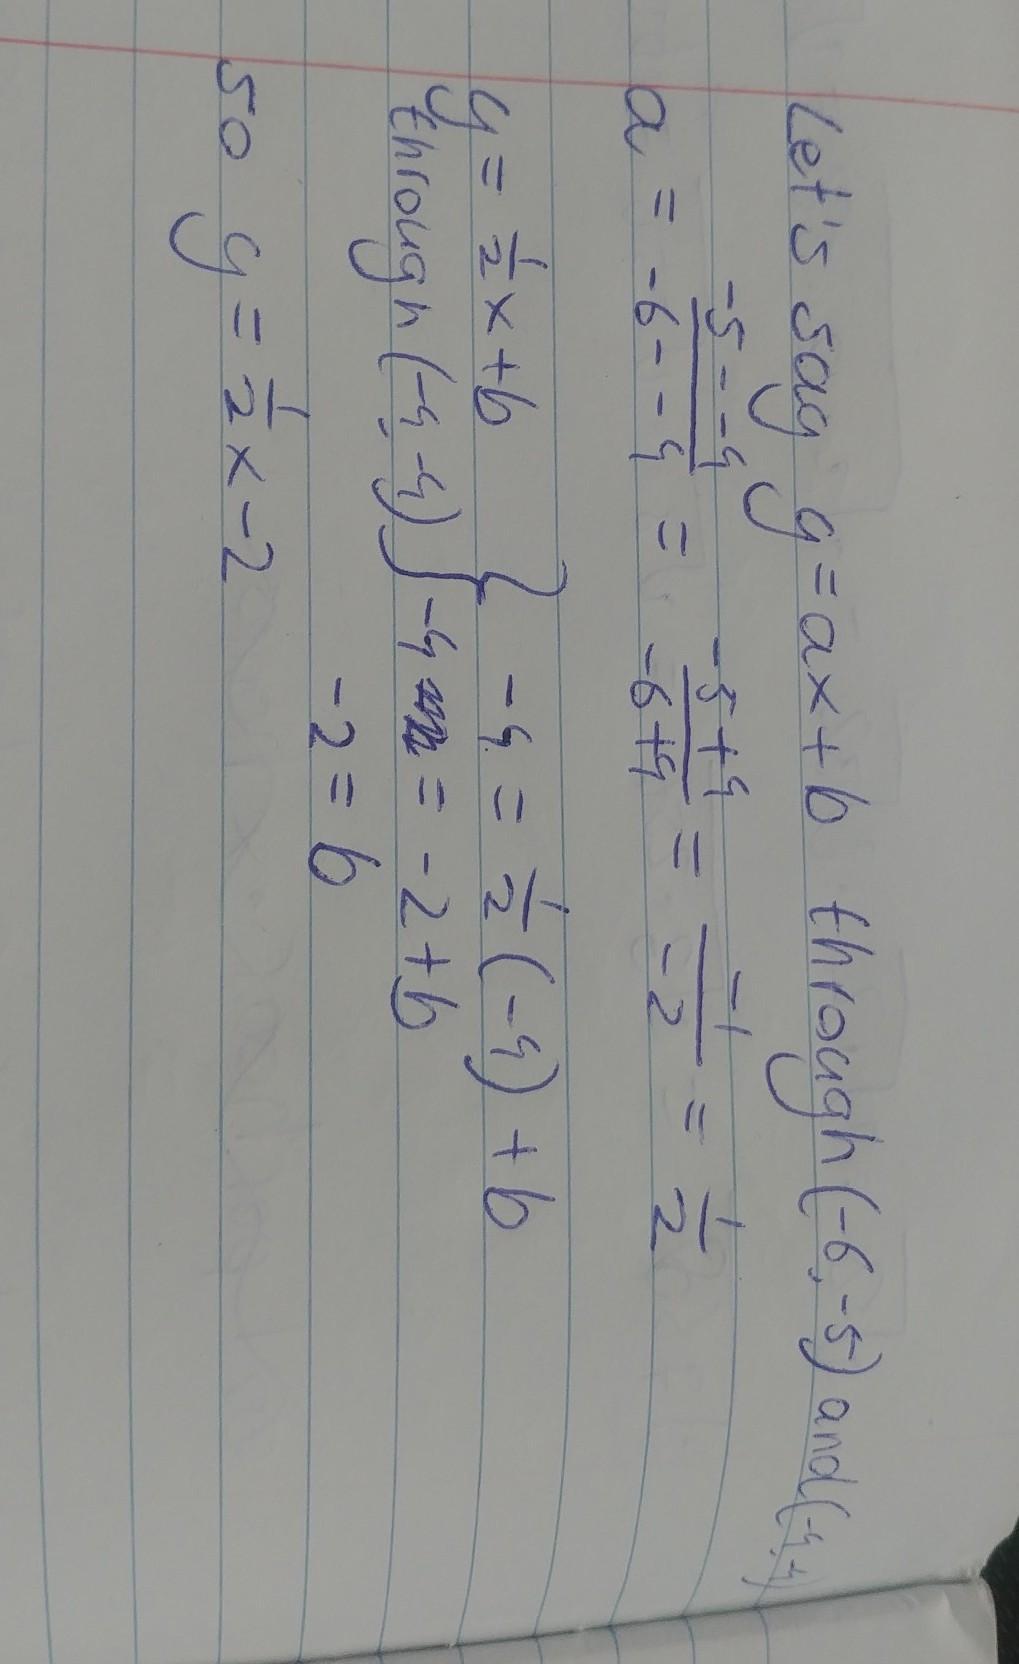 Let's say y=ax+b through (-6,-5) and (-4,-4)
a = -5--4/-6--4 = -5+4/-6+4 = -1/-2 = 1/2
y = 1/2 x + b } -4 = 1/2 (-4) + b
through (-4,-4) } -4 = -2 + b
-2 = b
so y = 1/2 x - 2